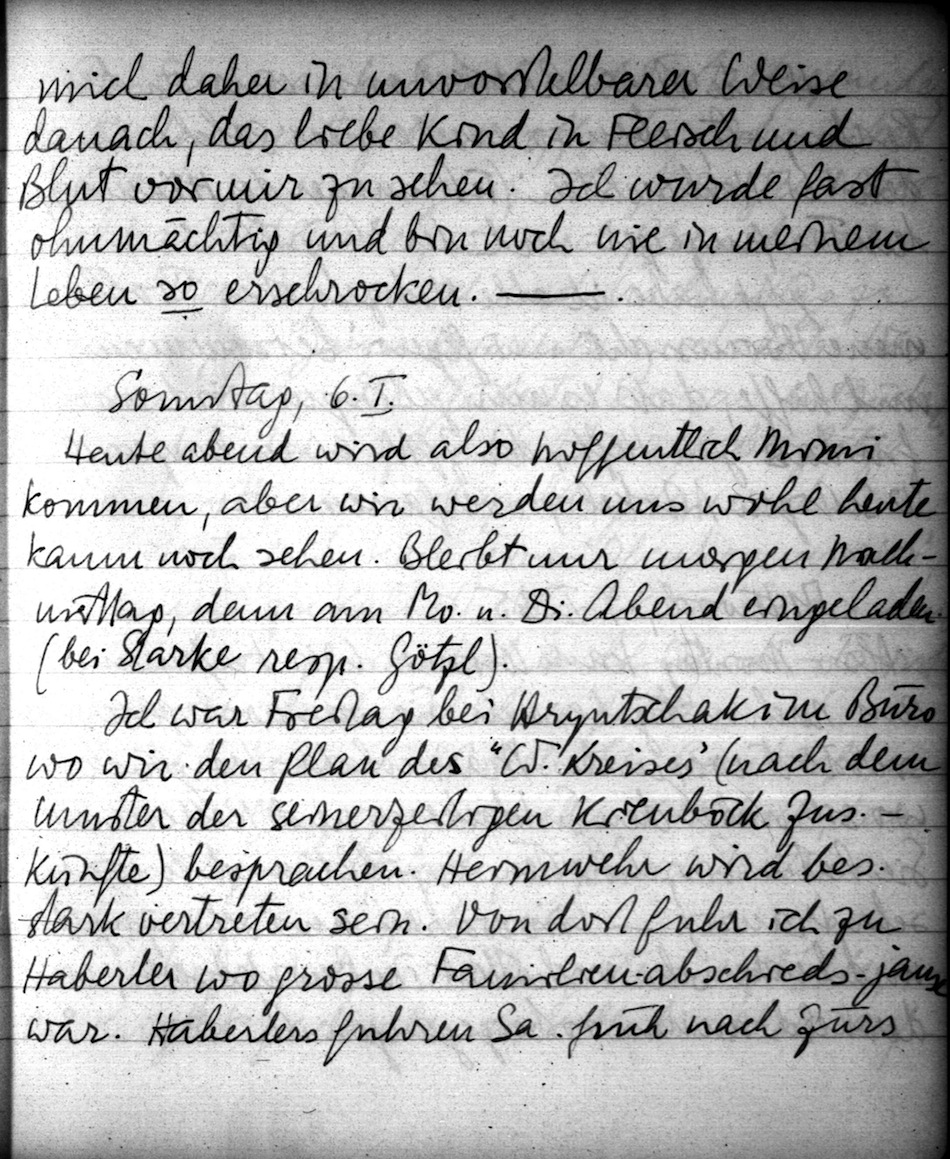 mich daher in unvorstellbarer Weise
danach, das liebe Kind in Fleisch und
Blut vor mir zu sehen. Ich wurde fast
ohnmächtig und bin noch nie in meinem
Leben so erschrocken. ———.
Sonntag, 6. I.
Heute abend wird also hoffentlich Mimi
kommen, aber wir werden uns wohl heute
kaum noch sehen. Bleibt nur morgen Nach-
mittag, denn am Mo. u. Di. Abend eingeladen
(bei Starke resp. Götzl).
Ich war Freitag bei Hryntschak im Büro
wo wir den Plan des "W. Kreises" (nach dem
Muster der seinerzeitigen Kienböck Zus.-
künfte) besprachen. Heimwehr wird bes.
stark vertreten sein. Von dort fuhr ich zu
Haberler wo grosse Familien-abschieds-jause
war. Haberlers fuhren Sa. früh nach Zürs